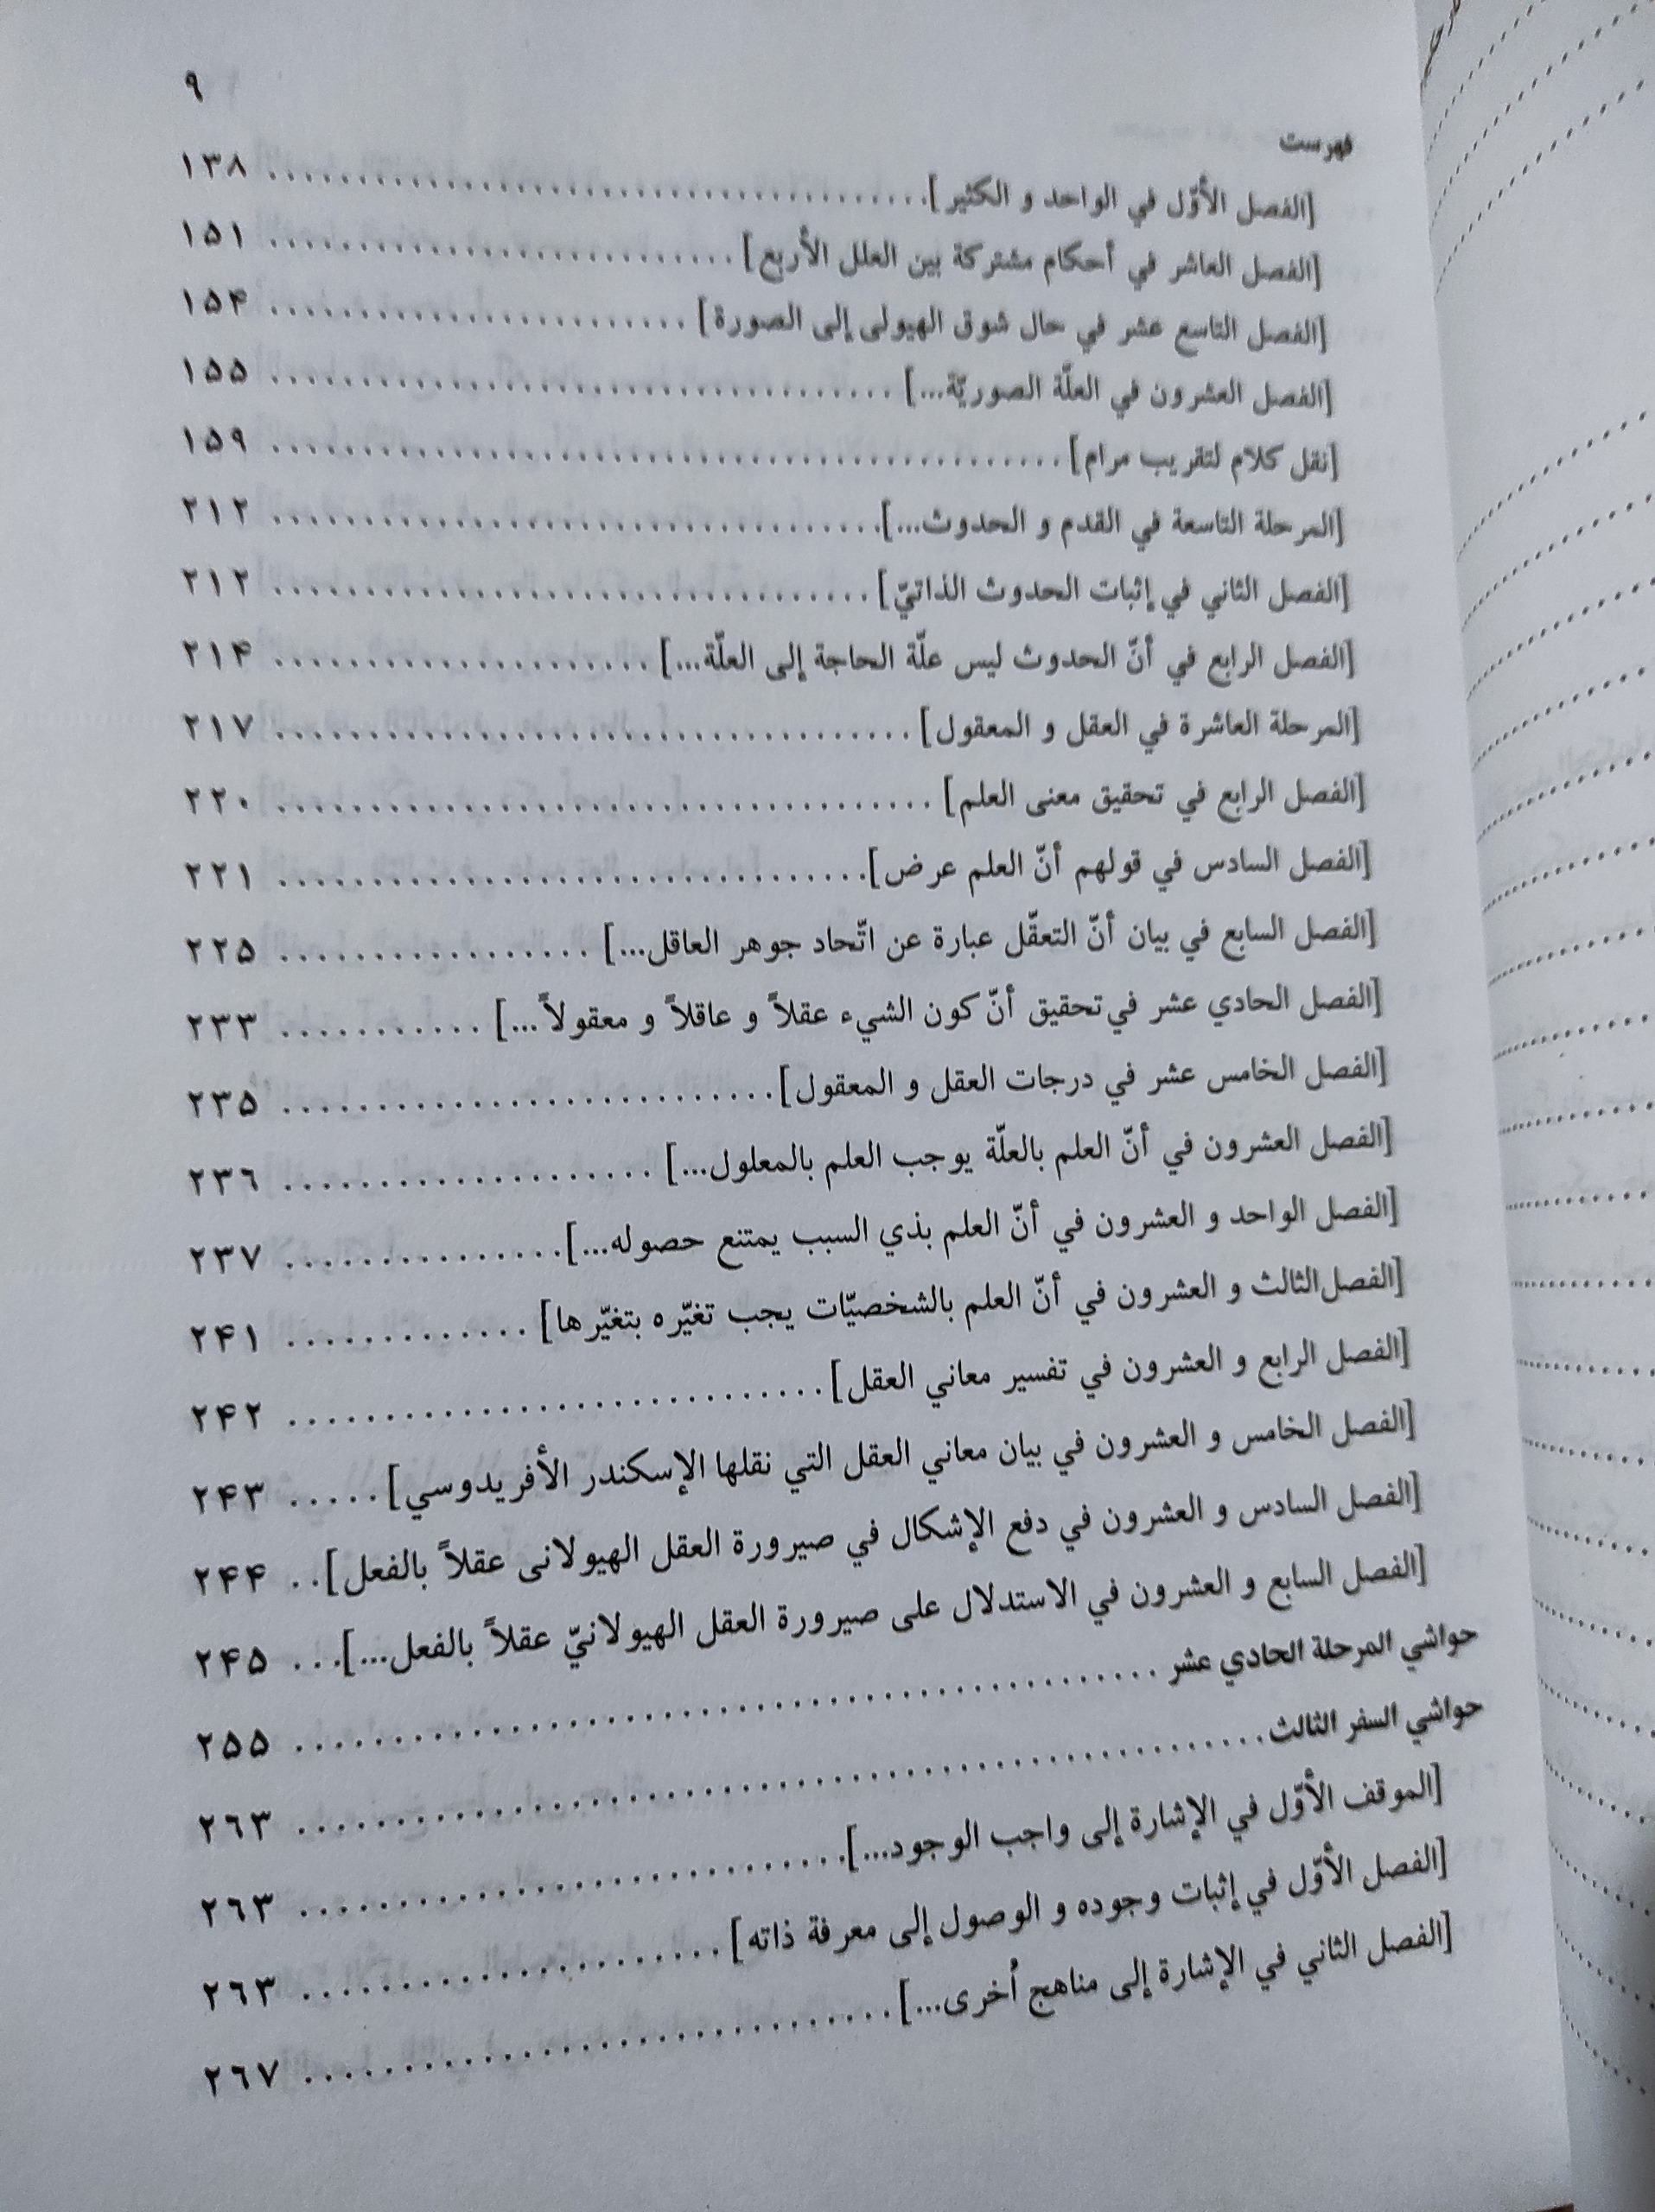 ۹
فهرست
[الفصل الأوّل في الواحد و الكثير] ........ ۱۳۸
[الفصل العاشر في أحكام مشتركة بين العلل الأربع] ........ ۱۵۱
[الفصل التاسع عشر في حال شوق الهيولى إلى الصورة] ........ ۱۵۴
[الفصل العشرون في العلّة الصوريّة...] ........ ۱۵۵
[نقل كلام لتقريب مرام] ........ ۱۵۹
[المرحلة التاسعة في القدم و الحدوث...] ........ ۲۱۲
[الفصل الثاني في إثبات الحدوث الذاتيّ] ........ ۲۱۲
[الفصل الرابع في أنّ الحدوث ليس علّة الحاجة إلى العلّة...] ........ ۲۱۴
[المرحلة العاشرة في العقل و المعقول] ........ ۲۱۷
[الفصل الرابع في تحقيق معنى العلم] ........ ۲۲۰
[الفصل السادس في قولهم أنّ العلم عرض] ........ ۲۲۱
[الفصل السابع في بيان أنّ التعقّل عبارة عن اتّحاد جوهر العاقل...] ........ ۲۲۵
[الفصل الحادي عشر في تحقيق أنّ كون الشيء عقلاً و عاقلاً و معقولاً...] ........ ۲۳۳
[الفصل الخامس عشر في درجات العقل و المعقول] ........ ۲۳۵
[الفصل العشرون في أنّ العلم بالعلّة يوجب العلم بالمعلول...] ........ ۲۳۶
[الفصل الواحد و العشرون في أنّ العلم بذي السبب يمتنع حصوله...] ........ ۲۳۷
[الفصل الثالث و العشرون في أنّ العلم بالشخصيّات يجب تغيّره بتغيّرها] ........ ۲۴۱
[الفصل الرابع و العشرون في تفسير معاني العقل] ........ ۲۴۲
[الفصل الخامس و العشرون في بيان معاني العقل التي نقلها الإسكندر الأفريدوسي] ..... ۲۴۳
[الفصل السادس و العشرون في دفع الإشكال في صيرورة العقل الهيولانى عقلاً بالفعل] .. ۲۴۴
[الفصل السابع و العشرون في الاستدلال على صيرورة العقل الهيولانيّ عقلاً بالفعل...] ... ۲۴۵
حواشي المرحلة الحادي عشر ........ ۲۵۵
حواشي السفر الثالث ........ ۲۶۳
[الموقف الأوّل في الإشارة إلى واجب الوجود...] ........ ۲۶۳
[الفصل الأوّل في إثبات وجوده و الوصول إلى معرفة ذاته] ........ ۲۶۳
[الفصل الثاني في الإشارة إلى مناهج أخرى...] ........ ۲۶۷